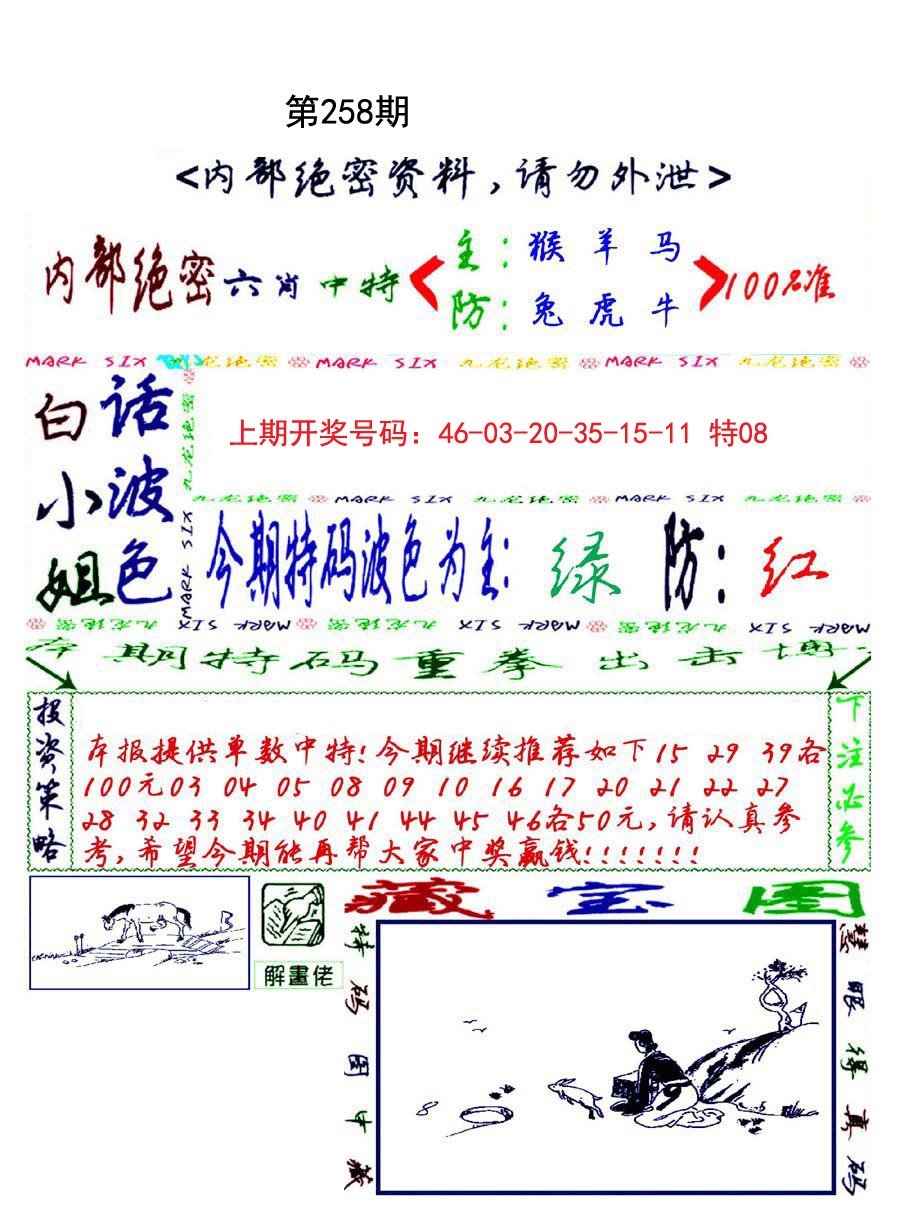 第258期
<内部绝密资料,请勿外泄>
内部绝密六肖中特
主:猴 羊 马
防:兔 虎 牛
100%准
MARK SIX 九龙绝密 MARK SIX 九龙绝密 MARK SIX 九龙绝密
白话
小波
姐色
九龙绝密
MARK SIX
上期开奖号码：46-03-20-35-15-11 特08
九龙绝密 MARK SIX 九龙绝密 MARK SIX 九龙绝密
今期特码波色为主:绿 防:红
九龙绝密 MARK SIX 九龙绝密 MARK SIX 九龙绝密 MARK SIX
本期特码重拳出击博
投资策略
本报提供单数中特!今期继续推荐如下15 29 39各
100元03 04 05 08 09 10 16 17 20 21 22 27
28 32 33 34 40 41 44 45 46各50元,请认真参
考,希望今期能再帮大家中奖赢钱!!!!!!!
下注必参
解畫佬
藏宝图
特码图中藏
慧眼得真码